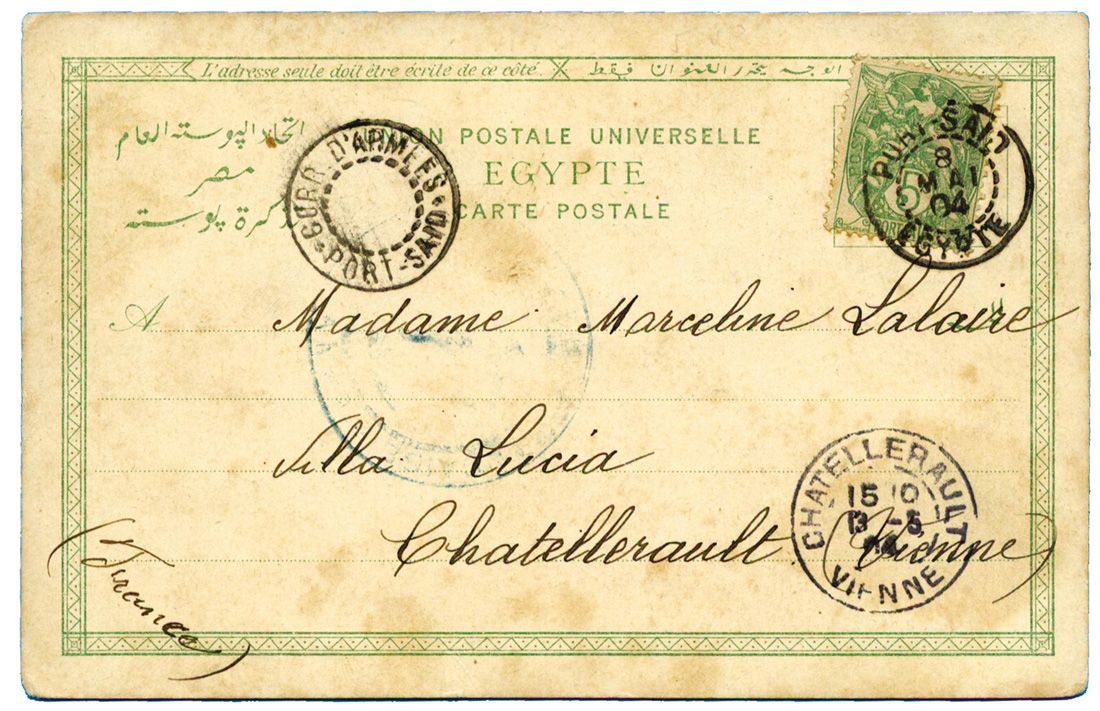 L'adresse seule doit être écrite de ce côté. فقط العنوان يحرر الوجه
اتحاد البوسته العام
UNION POSTALE UNIVERSELLE
مصر
EGYPTE
تذكرة بوسته
CARTE POSTALE
CORR. D'ARMEES
PORT-SAID
PORT-SAID
8
MAI
04
EGYPTE
5
A Madame Marceline Lalaire
Villa Lucia
Chatellerault (Vienne)
(France)
CHATELLERAULT
15
13 -5
VIENNE